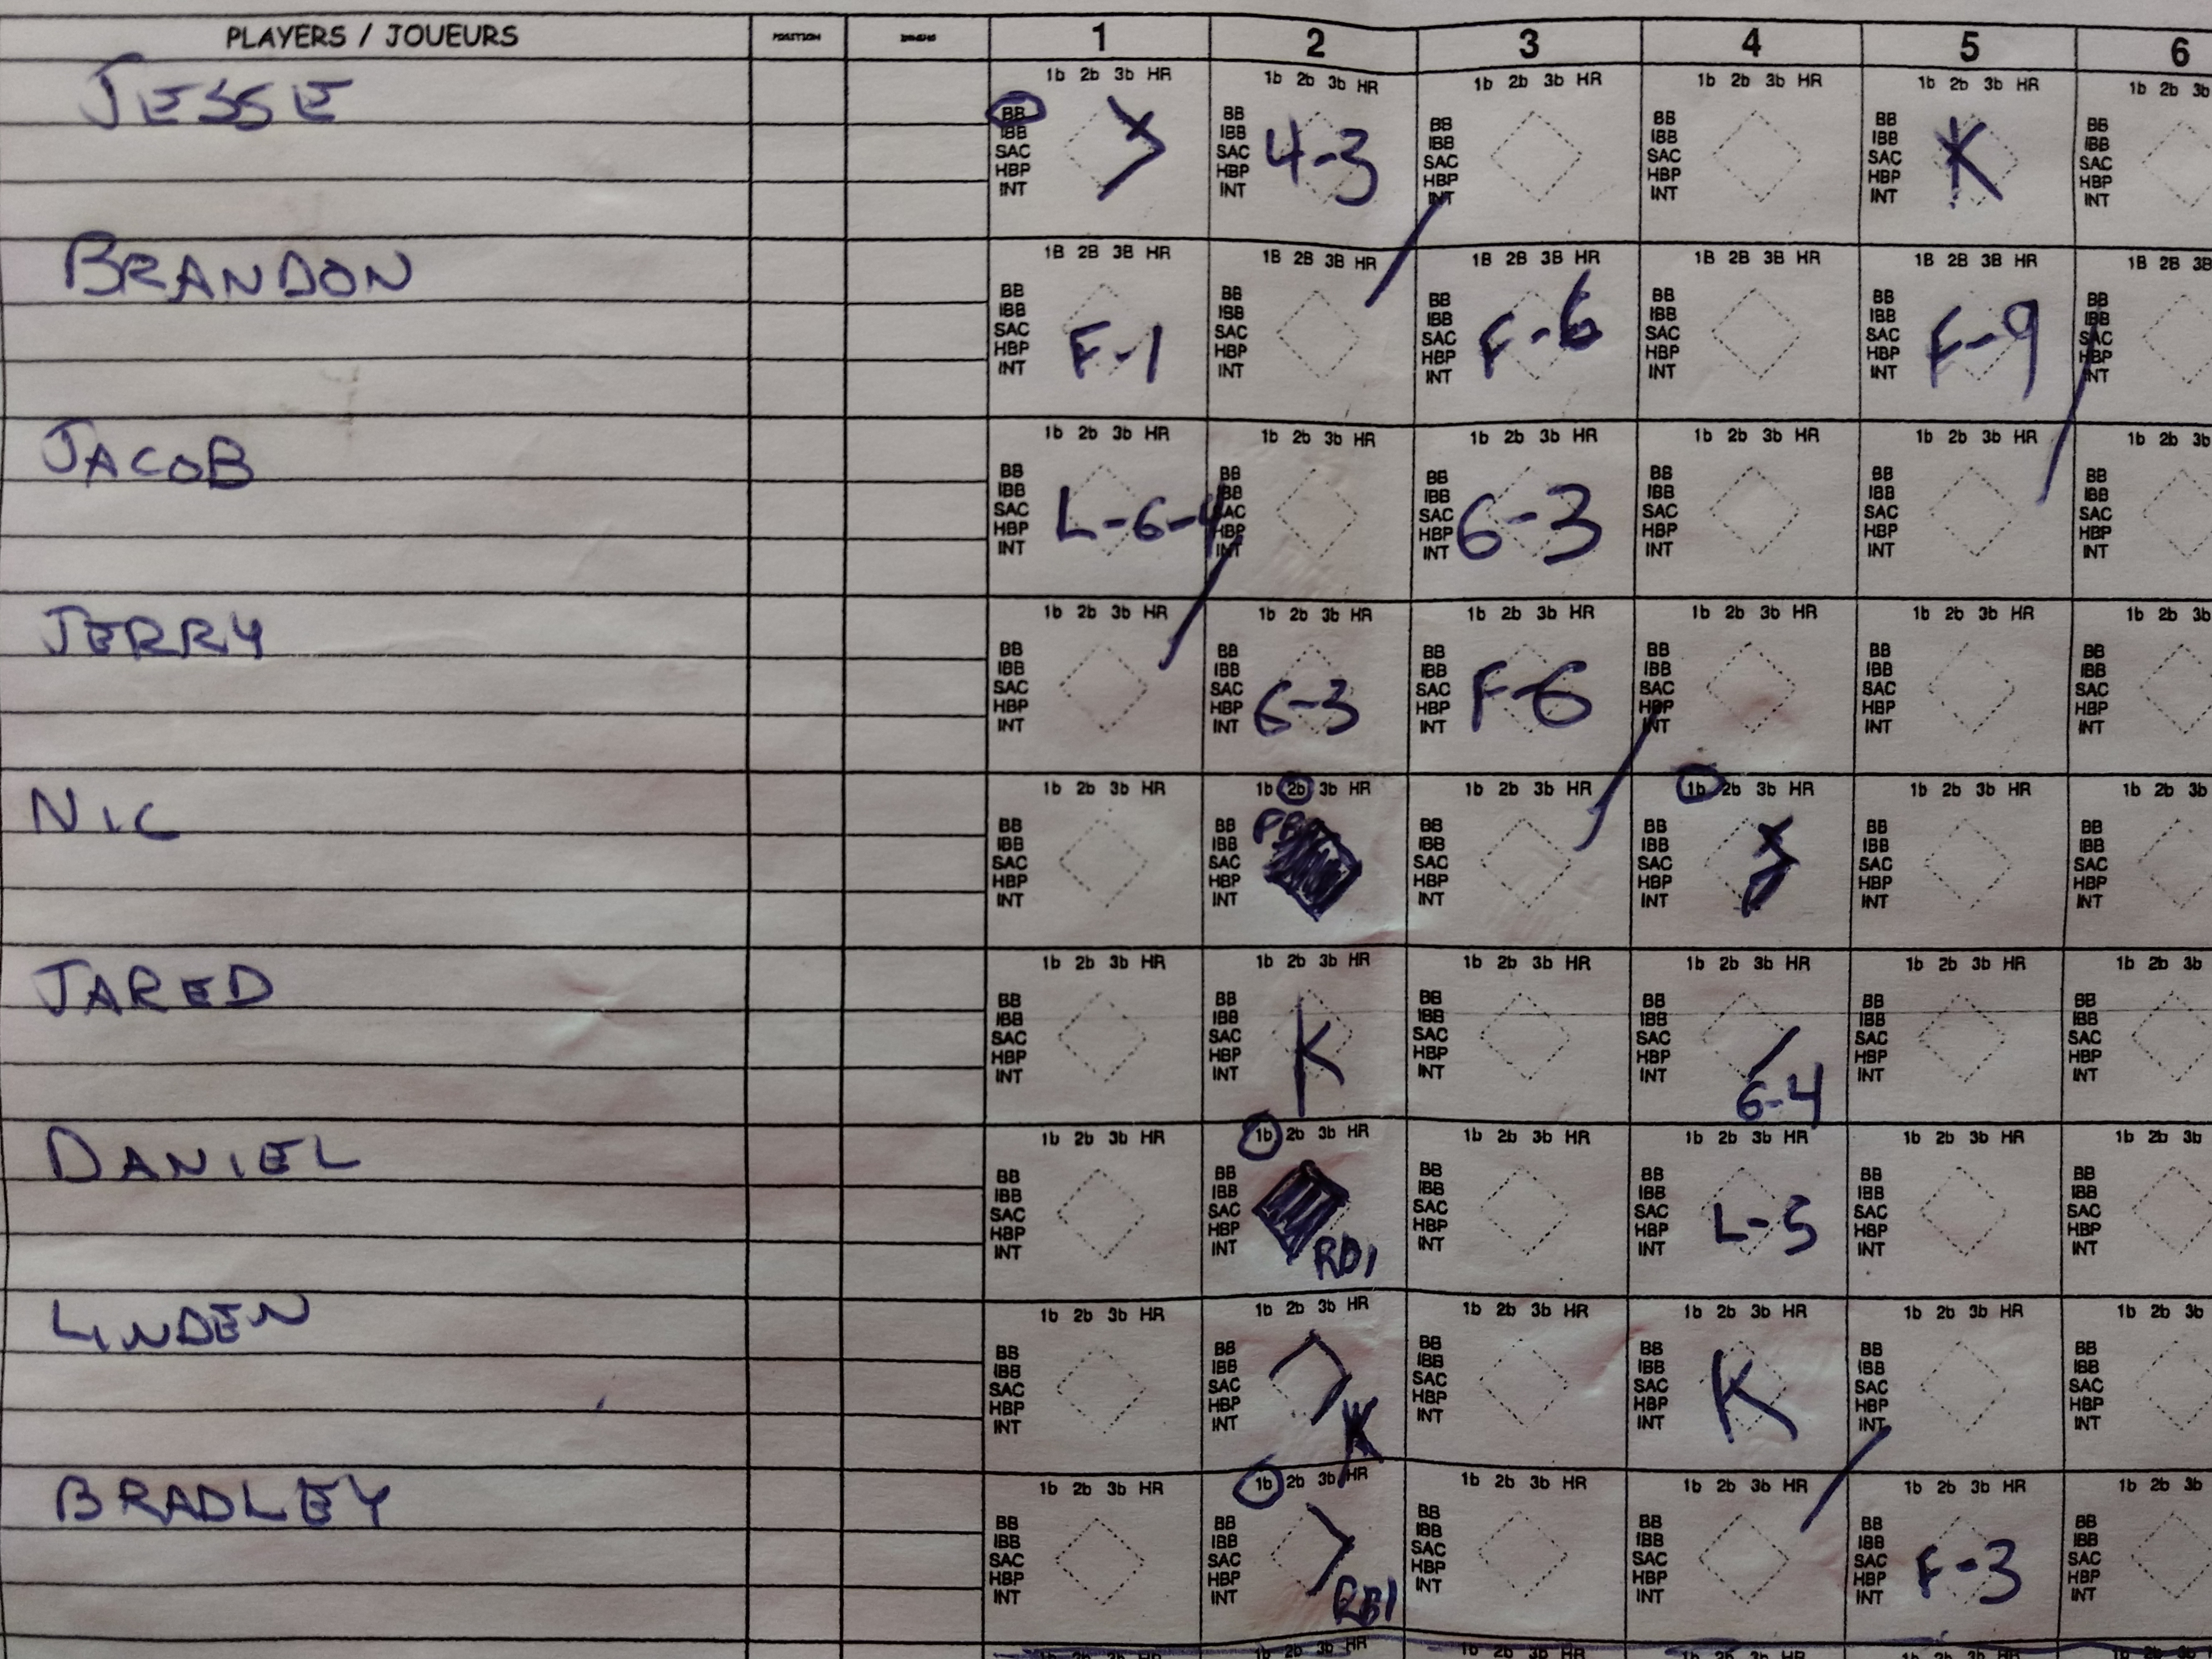 PLAYERS / JOUEURS POSITION 1 2 3 4 5 6
JESSE
1b 2b 3b HR 1b 2b 3b HR 1b 2b 3b HR 1b 2b 3b HR 1b 2b 3b HR 1b 2b 3b
BB BB BB BB BB BB
IBB IBB IBB IBB IBB IBB
SAC 4-3 SAC SAC SAC SAC K SAC
HBP HBP HBP HBP HBP HBP
INT INT INT INT INT INT
BRANDON
1B 2B 3B HR 1B 2B 3B HR 1B 2B 3B HR 1B 2B 3B HR 1B 2B 3B HR 1B 2B 3B
BB BB BB BB BB BB
IBB IBB IBB IBB IBB IBB
SAC F-1 SAC SAC F-6 SAC SAC F-9 SAC
HBP HBP HBP HBP HBP HBP
INT INT INT INT INT INT
JACOB
1b 2b 3b HR 1b 2b 3b HR 1b 2b 3b HR 1b 2b 3b HR 1b 2b 3b HR 1b 2b 3b
BB BB BB BB BB BB
IBB IBB IBB IBB IBB IBB
SAC L-6-4 SAC SAC 6-3 SAC SAC SAC
HBP HBP HBP HBP HBP HBP
INT INT INT INT INT INT
JERRY
1b 2b 3b HR 1b 2b 3b HR 1b 2b 3b HR 1b 2b 3b HR 1b 2b 3b HR 1b 2b 3b
BB BB BB BB BB BB
IBB IBB IBB IBB IBB IBB
SAC SAC 6-3 SAC F-6 SAC SAC SAC
HBP HBP HBP HBP HBP HBP
INT INT INT INT INT INT
NIC
1b 2b 3b HR 1b 2b 3b HR 1b 2b 3b HR 1b 2b 3b HR 1b 2b 3b HR 1b 2b 3b
BB BB BB BB BB BB
IBB IBB IBB IBB IBB IBB
SAC SAC SAC SAC SAC SAC
HBP HBP HBP HBP HBP HBP
INT INT INT INT INT INT
JARED
1b 2b 3b HR 1b 2b 3b HR 1b 2b 3b HR 1b 2b 3b HR 1b 2b 3b HR 1b 2b 3b
BB BB BB BB BB BB
IBB IBB IBB IBB IBB IBB
SAC SAC K SAC SAC SAC SAC
HBP HBP HBP HBP HBP HBP
INT INT INT INT 6-4 INT INT
DANIEL
1b 2b 3b HR 1b 2b 3b HR 1b 2b 3b HR 1b 2b 3b HR 1b 2b 3b HR 1b 2b 3b
BB BB BB BB BB BB
IBB IBB IBB IBB IBB IBB
SAC SAC SAC SAC L-5 SAC SAC
HBP HBP HBP HBP HBP HBP
INT INT RBI INT INT INT INT
LINDEN
1b 2b 3b HR 1b 2b 3b HR 1b 2b 3b HR 1b 2b 3b HR 1b 2b 3b HR 1b 2b 3b
BB BB BB BB BB BB
IBB IBB IBB IBB IBB IBB
SAC SAC SAC SAC K SAC SAC
HBP HBP HBP HBP HBP HBP
INT INT K INT INT INT INT
BRADLEY
1b 2b 3b HR 1b 2b 3b HR 1b 2b 3b HR 1b 2b 3b HR 1b 2b 3b HR 1b 2b 3b
BB BB BB BB BB BB
IBB IBB IBB IBB IBB IBB
SAC SAC SAC SAC SAC F-3 SAC
HBP HBP HBP HBP HBP HBP
INT INT RBI INT INT INT INT